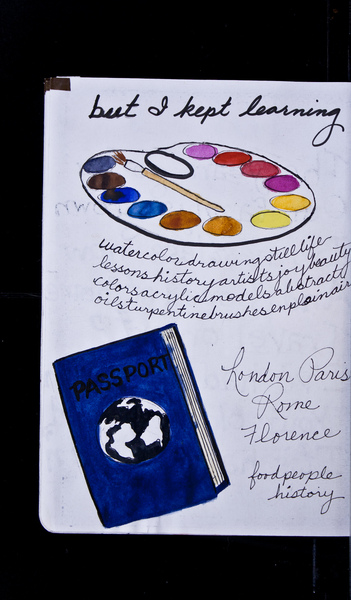 but I kept learning
watercolordrawingstilllife
lessonshistoryartistsjoybeauty
colorsacrylicmodelsabstract
oilsturpentinebrushesenpleinair
PASSPORT
London Paris
Rome
Florence
foodpeople
history